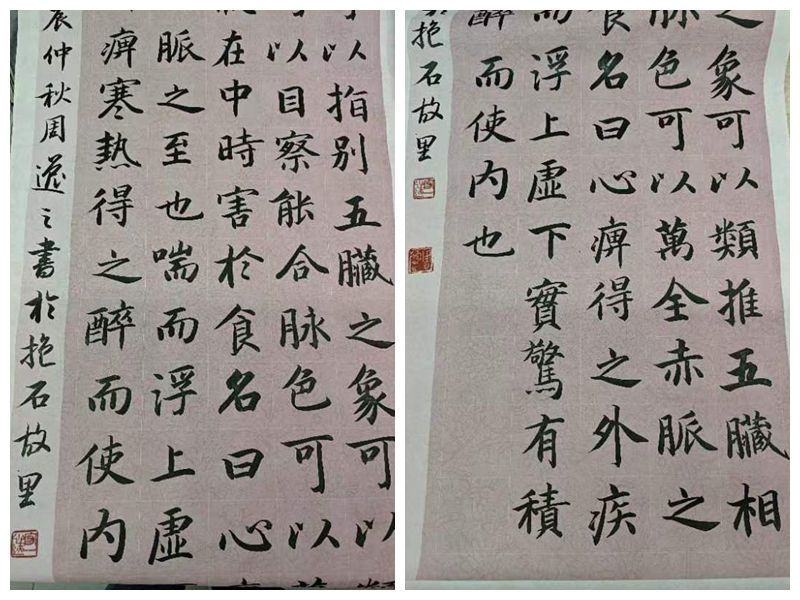 以指別五臟之象可以
可以目察能合脉色可以
在中時害於食名曰心
脈之至也喘而浮上虛
痺寒熱得之醉而使內
辰仲秋周逸之書於抱石故里
之象可以類推五臟相
脉色可以萬全赤脈之
食名曰心痺得之外疾
而浮上虛下實驚有積
醉而使內也
抱石故里